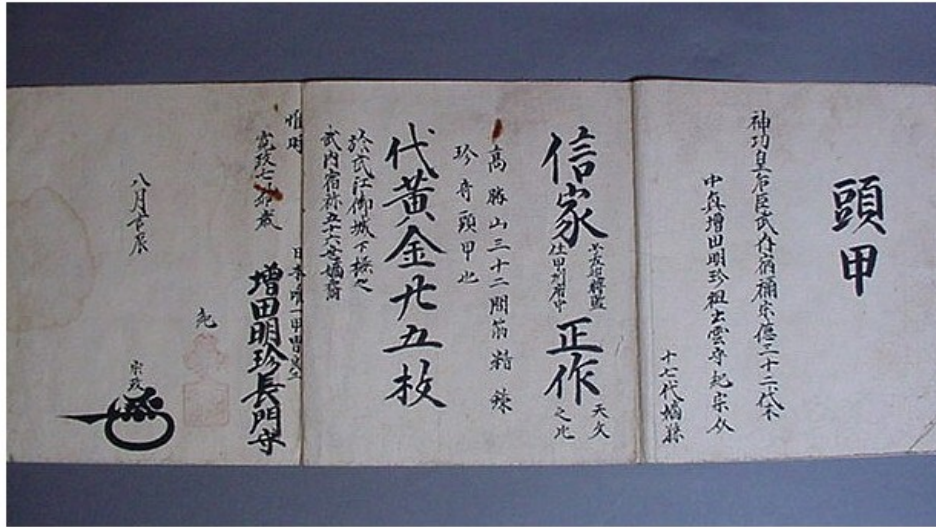 頭甲
神功皇后臣武内宿禰宗 三十二代
中興増田明珍祖出雲守紀宗介
十七代嫡孫
信家 左近将監 住甲州府中 正作 天文之比
高勝山三十二間筋精錬
珍奇頭甲也
代黄金廿五枚
於武江御城下極之
武内宿祢五十六世嫡裔
惟時
寛政七 卯歳
日本唯一甲冑良工
増田明珍長門守
紀
宗政
八月吉辰